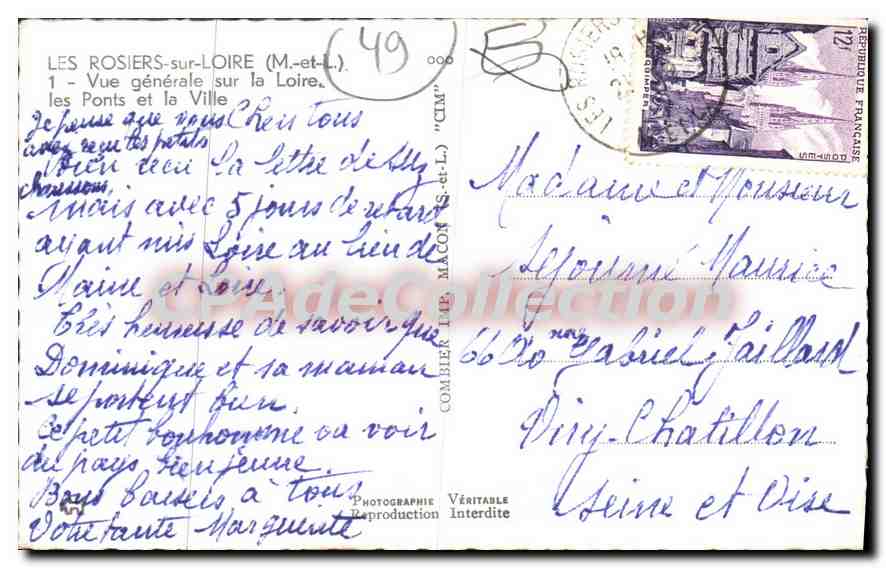 LES ROSIERS-sur-LOIRE (M.-et-L.)
1 - Vue générale sur la Loire,
les Ponts et la Ville
49
Je pense que vous
avez reçu les petits
chaussons
Chers tous
Bien reçu la lettre de Suz
mais avec 5 jours de retard
ayant mis Loire au lieu de
Maine et Loire.
Très heureuse de savoir que
Dominique et sa maman
se portent bien.
Ce petit bonhomme va voir
du pays bien jeune.
Bons baisers à tous
Votre tante Marguerite
COMBIER IMP. MACON (S.-et-L.) "CIM"
PHOTOGRAPHIE VÉRITABLE
Reproduction Interdite
LES ROSIERS
12f
RÉPUBLIQUE FRANÇAISE
POSTES
QUIMPER
Madame et Monsieur
Séjourné Maurice
66 Gabriel Jaillard
Viry-Chatillon
Seine et Oise
CPAdeCollection